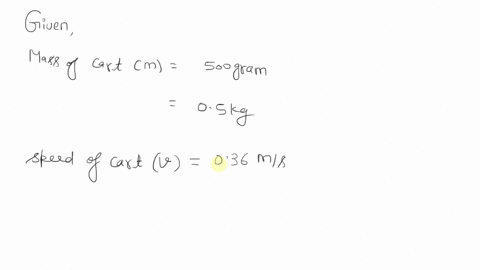 Given,
Mass of cart (m) = 500gram
= 0.5kg
speed of cart (v) = 0.36 m/s